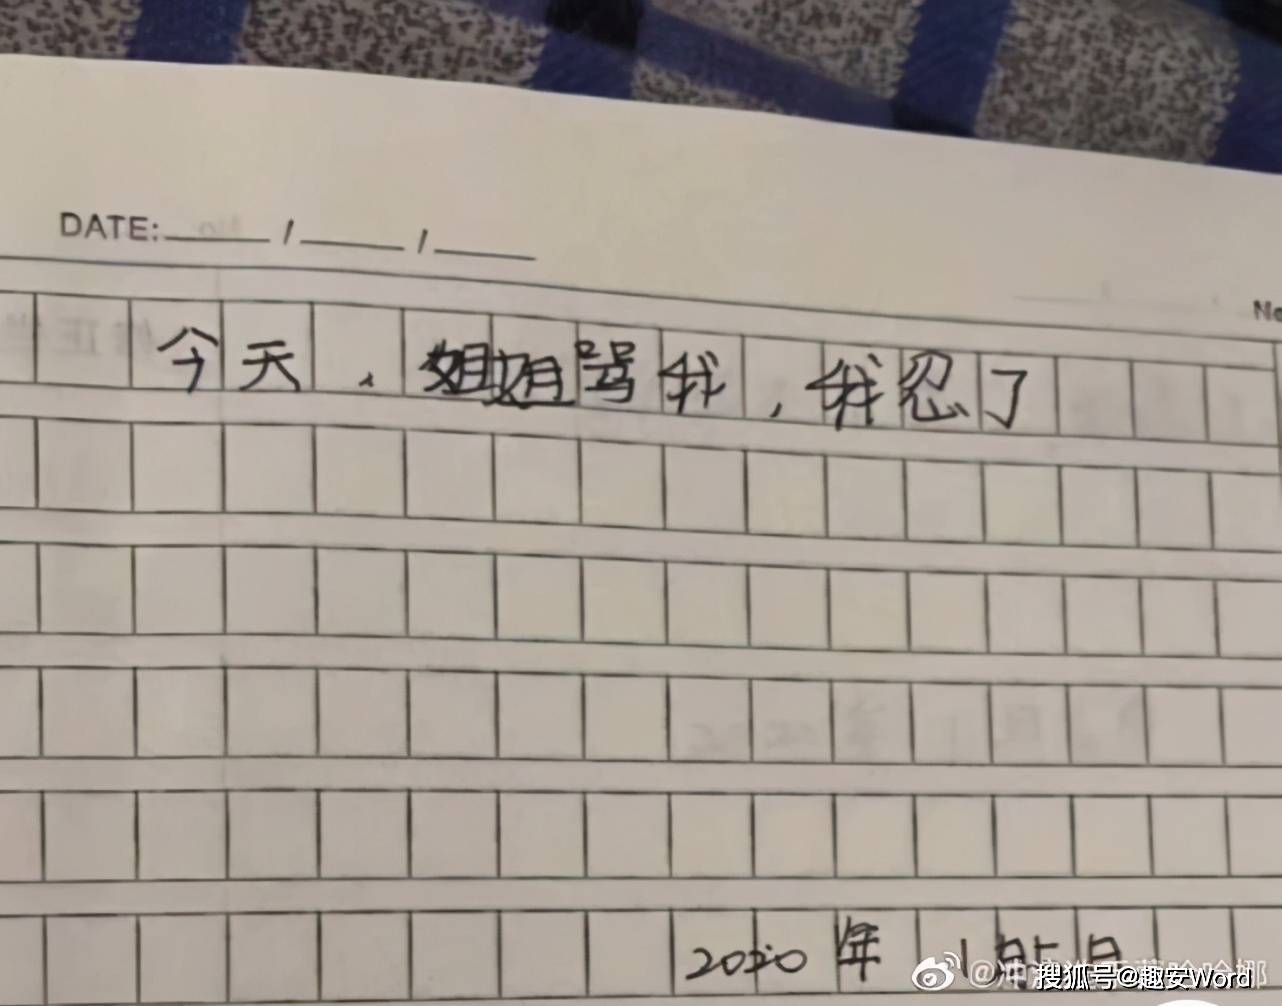 DATE: / /
No
今天,姐姐骂我,我忍了
2020年1月5日
搜狐号@趣安Word